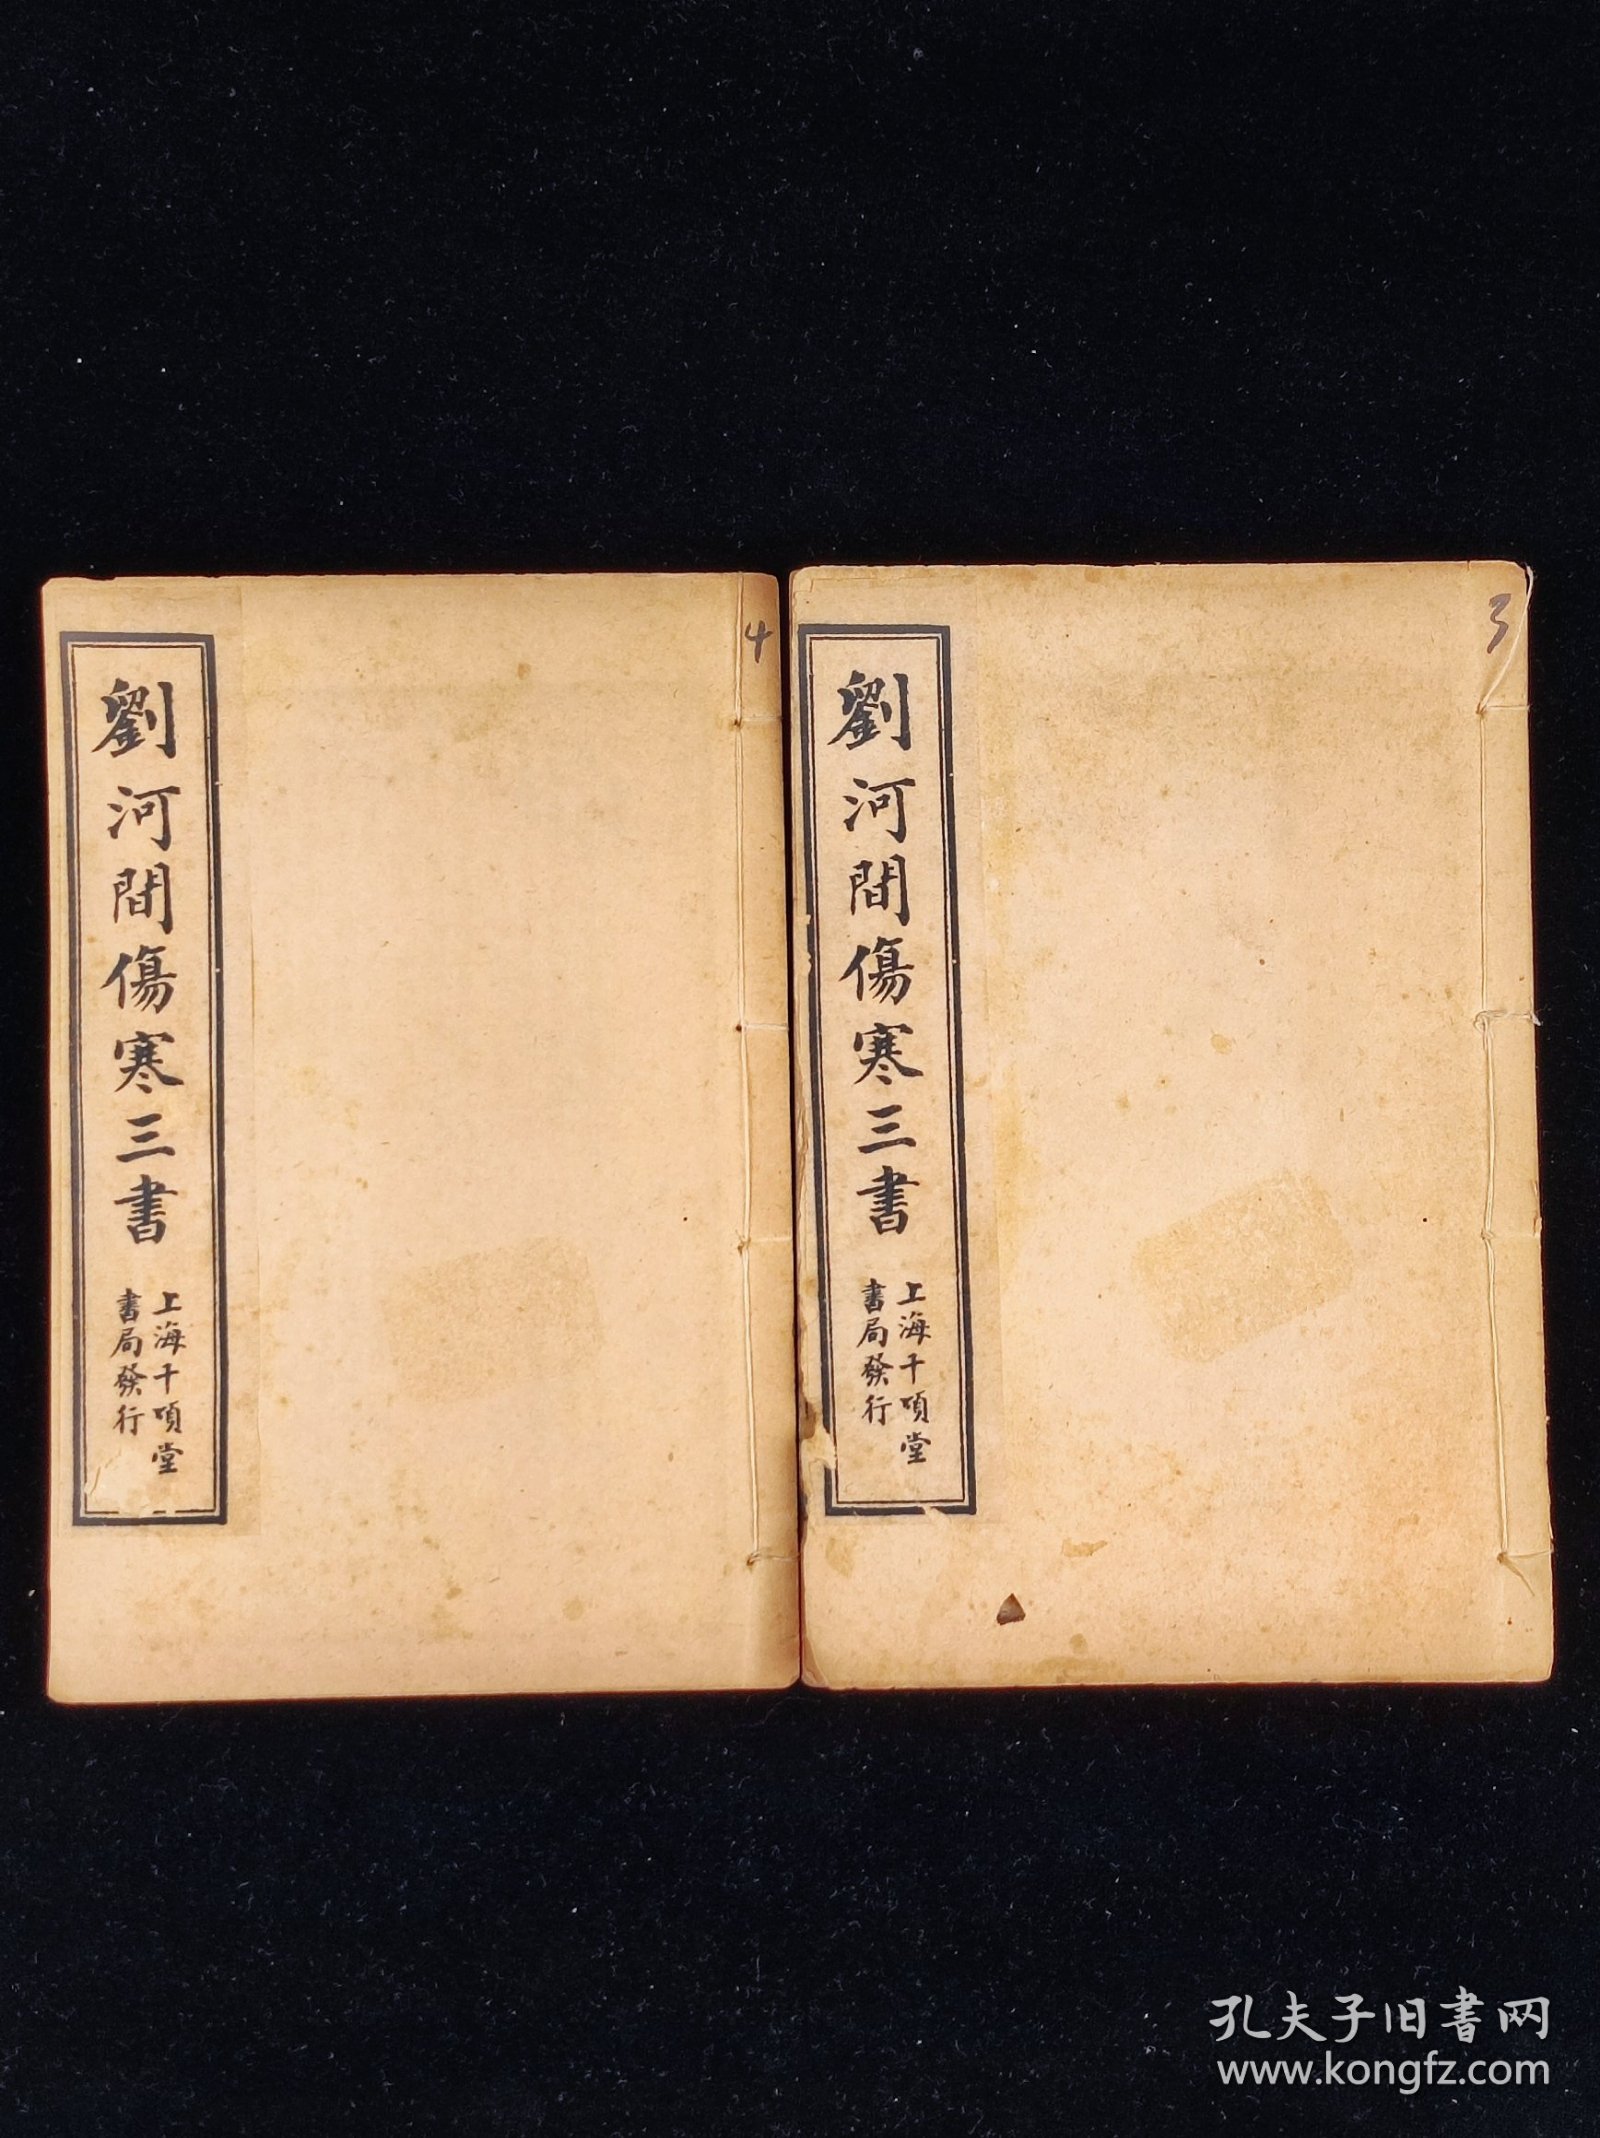 4
劉河間傷寒三書
上海千頃堂
書局發行
3
劉河間傷寒三書
上海千頃堂
書局發行
孔夫子旧书网
www.kongfz.com